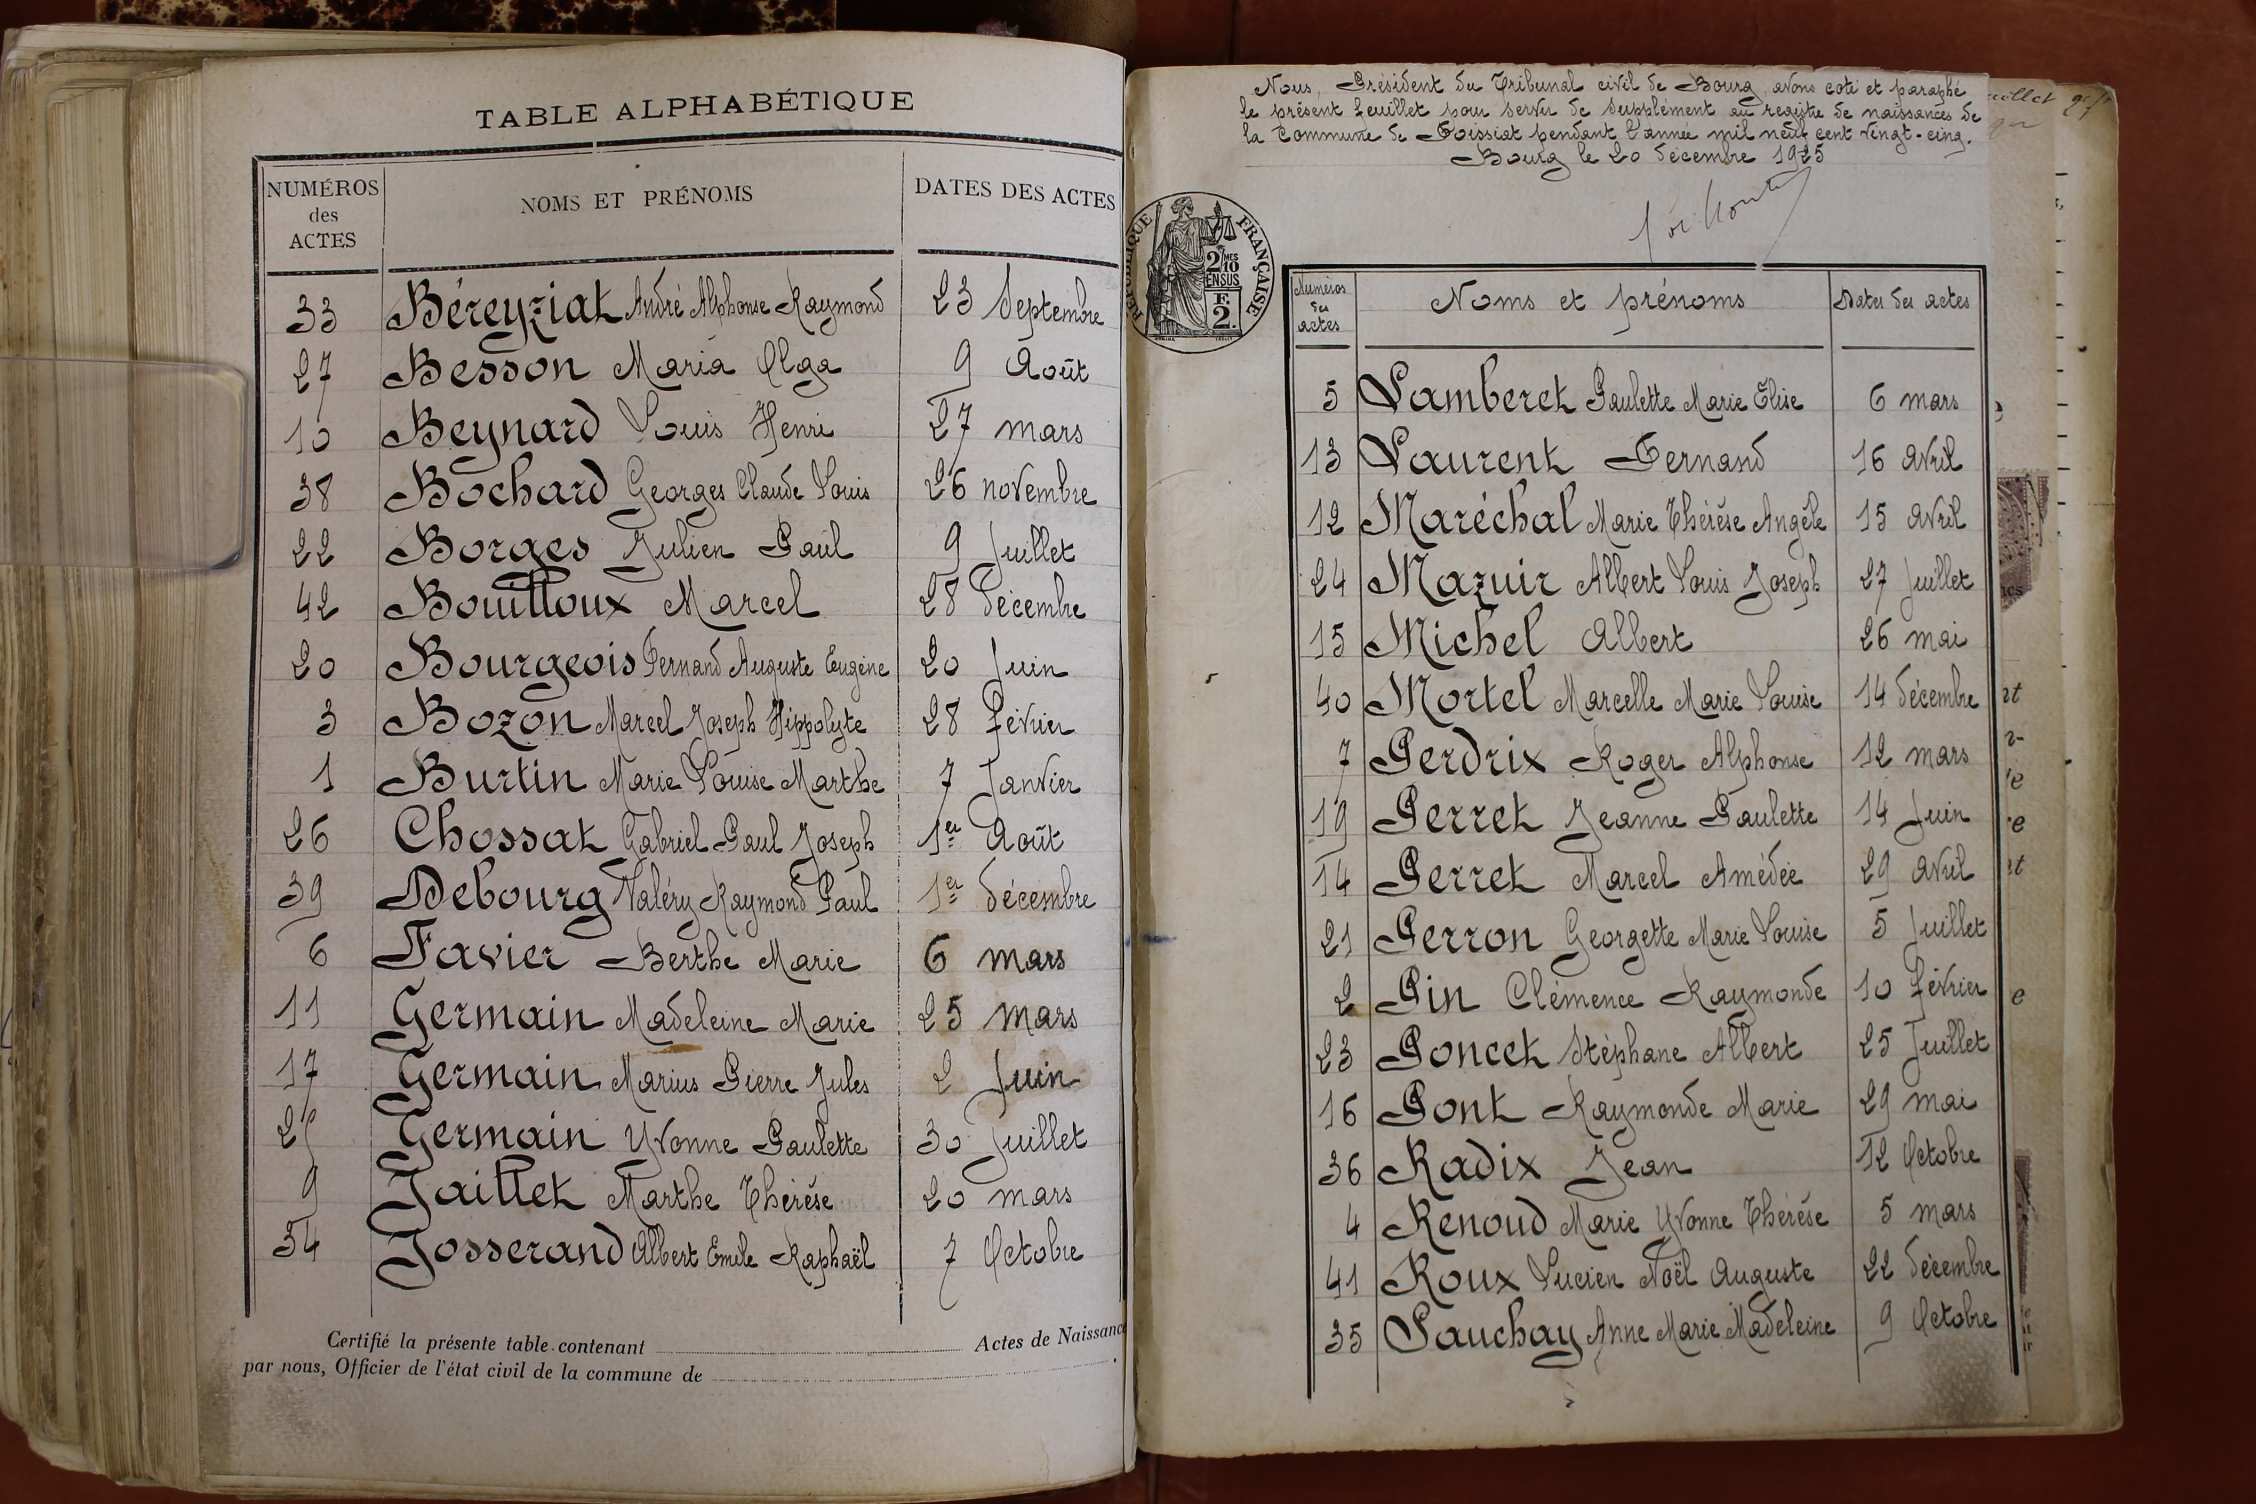 TABLE ALPHABÉTIQUE
NUMÉROS des ACTES NOMS ET PRÉNOMS DATES DES ACTES
33 Béreyziat André Alphonse Raymond 23 Septembre
27 Besson Maria Olga 9 Août
10 Beynard Louis Henri 27 mars
38 Bochard Georges Claude Louis 26 novembre
22 Borges Julien Paul 9 Juillet
42 Bouilloux Marcel 28 décembre
20 Bourgeois Fernand Auguste Eugène 20 Juin
3 Bozon Marcel Joseph Hippolyte 28 Février
1 Burtin Marie Louise Marthe 7 Janvier
26 Chossat Gabriel Paul Joseph 1er Août
39 Debourg Valéry Raymond Paul 1er décembre
6 Favier Berthe Marie 6 mars
11 Germain Madeleine Marie 25 mars
17 Germain Marius Pierre Jules 2 Juin
25 Germain Yvonne Paulette 30 Juillet
9 Jaillet Marthe Thérèse 20 mars
34 Josserand Albert Emile Raphaël 7 Octobre
Certifié la présente table contenant Actes de Naissance
par nous, Officier de l'état civil de la commune de
Nous, Président du Tribunal civil de Bourg, avons coté et paraphé
le présent feuillet pour servir de supplément au registre de naissances de
la Commune de Foissiat pendant l'année mil neuf cent vingt-cinq.
Bourg le 20 décembre 1925
RÉPUBLIQUE FRANÇAISE
2/10MES
EN SUS
F.
2.
Numéros des actes Noms et prénoms Dates des actes
5 Lamberet Paulette Marie Elise 6 mars
13 Laurent Fernand 16 Avril
12 Maréchal Marie Thérèse Angèle 15 Avril
24 Mazuir Albert Louis Joseph 27 Juillet
15 Michel Albert 26 mai
40 Mortel Marcelle Marie Louise 14 décembre
7 Perdrix Roger Alphonse 12 mars
19 Perret Jeanne Paulette 14 Juin
14 Perret Marcel Amédée 29 Avril
21 Perron Georgette Marie Louise 5 Juillet
2 Pin Clémence Raymonde 10 Février
23 Poncet Stéphane Albert 25 Juillet
16 Pont Raymonde Marie 29 mai
36 Radix Jean 12 Octobre
4 Renoud Marie Yvonne Thérèse 5 mars
41 Roux Lucien Noël Auguste 22 décembre
35 Sauchay Anne Marie Madeleine 9 Octobre